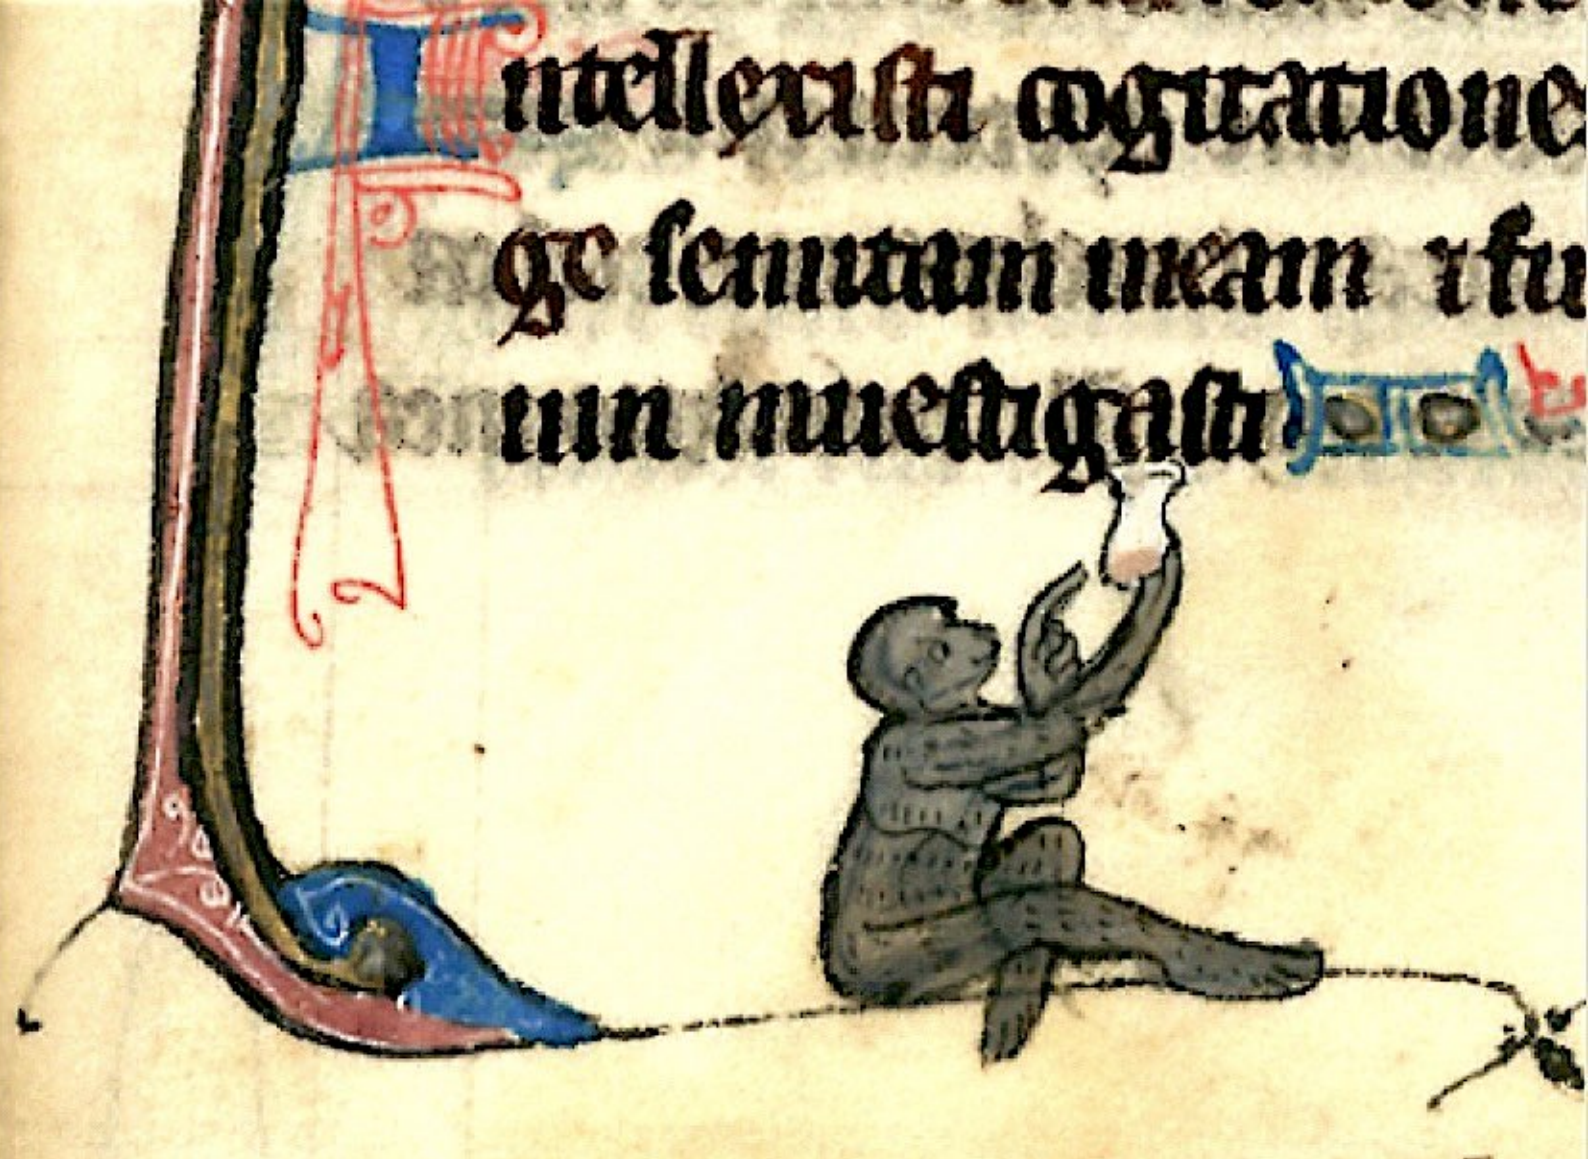 Intellexisti cogitatione
ge semitam meam ⁊ fu
um inuestigasti